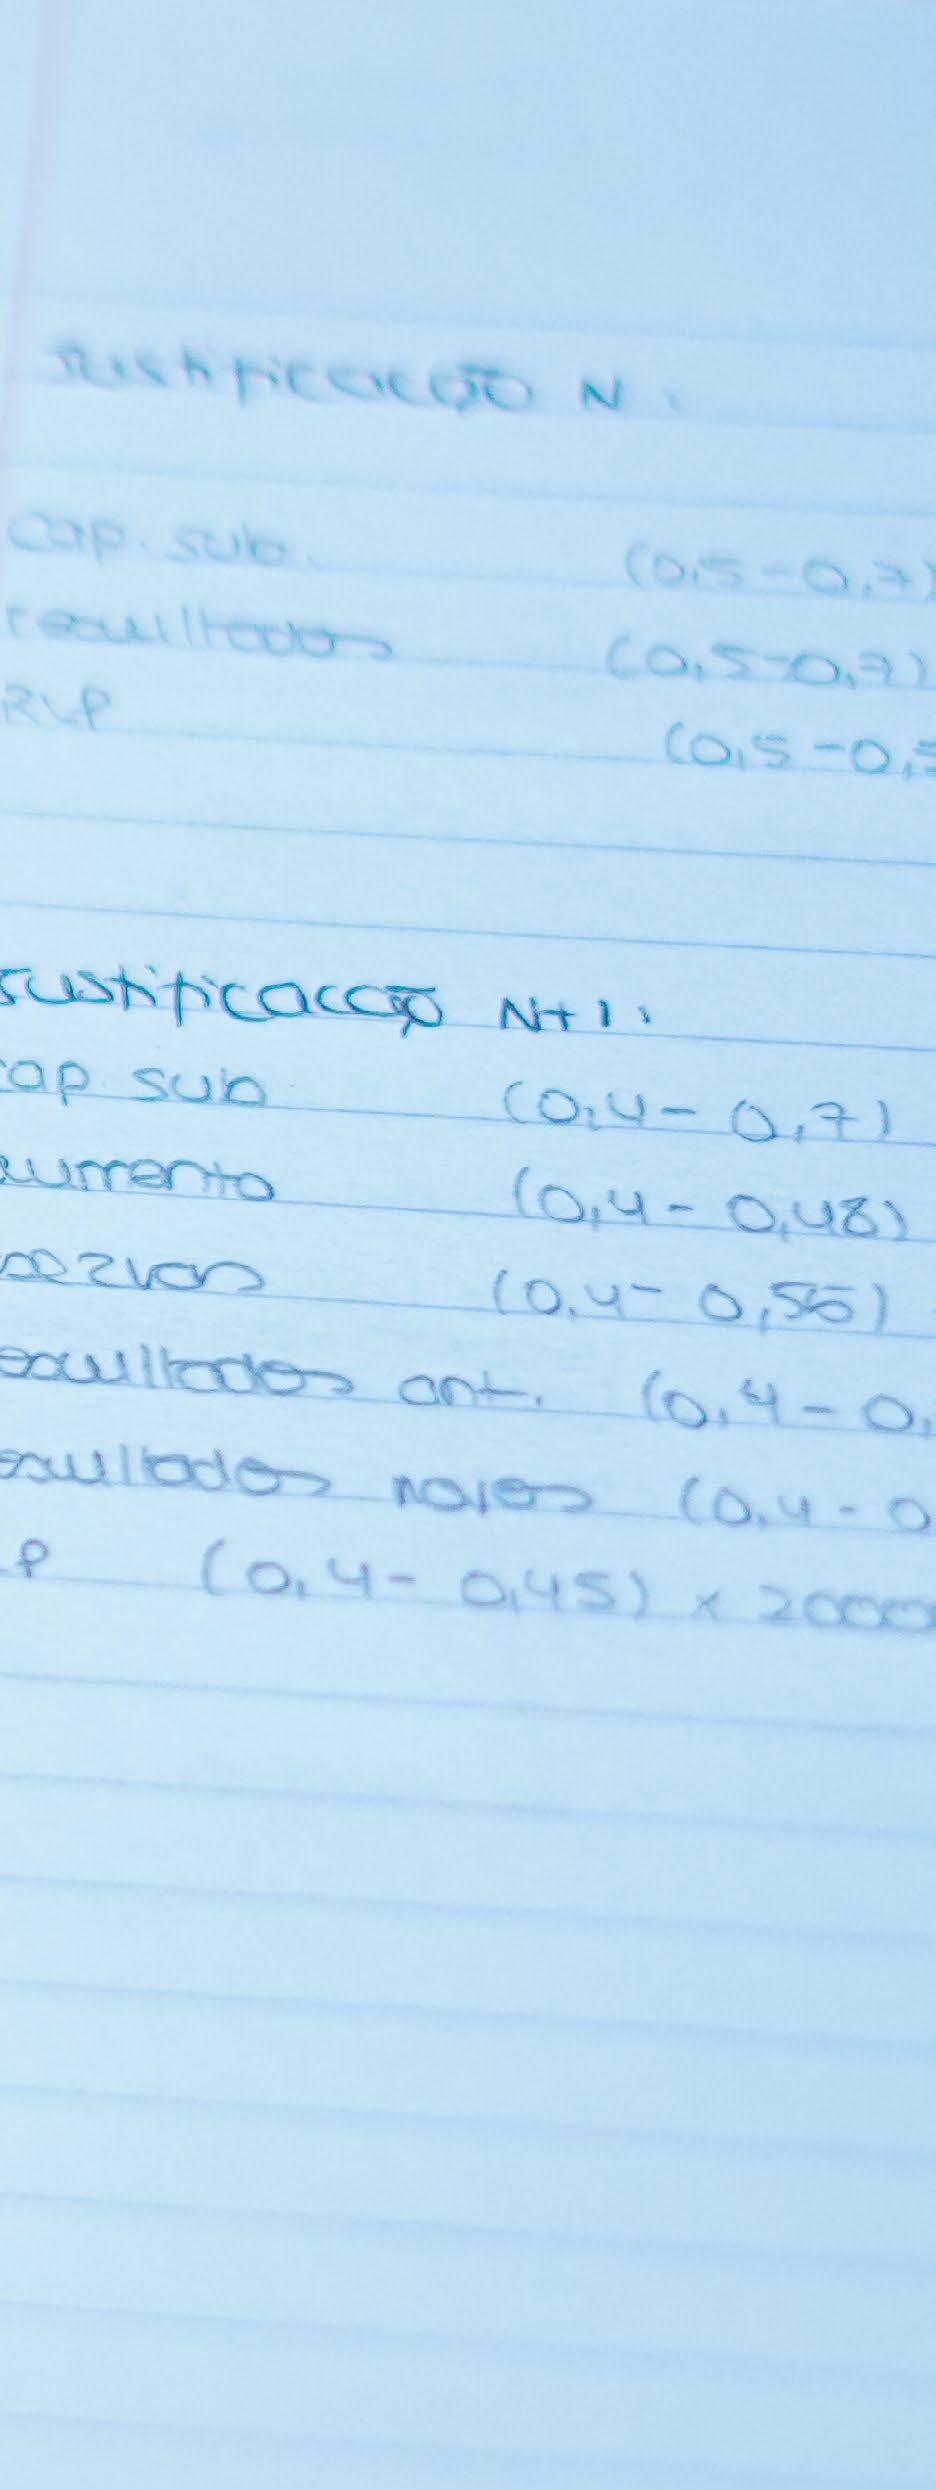 Justificacção N.
Cap. sub. (0,5-0,7)
resultados (0,5-0,7)
RLP (0,5-0,5
Justificacção N+1.
cap. sub (0,4-0,7)
aumento (0,4-0,48)
(0,4-0,55)
resultados ant. (0,4-0,
resultados (0,4-0
LP (0,4-0,45) x 20000